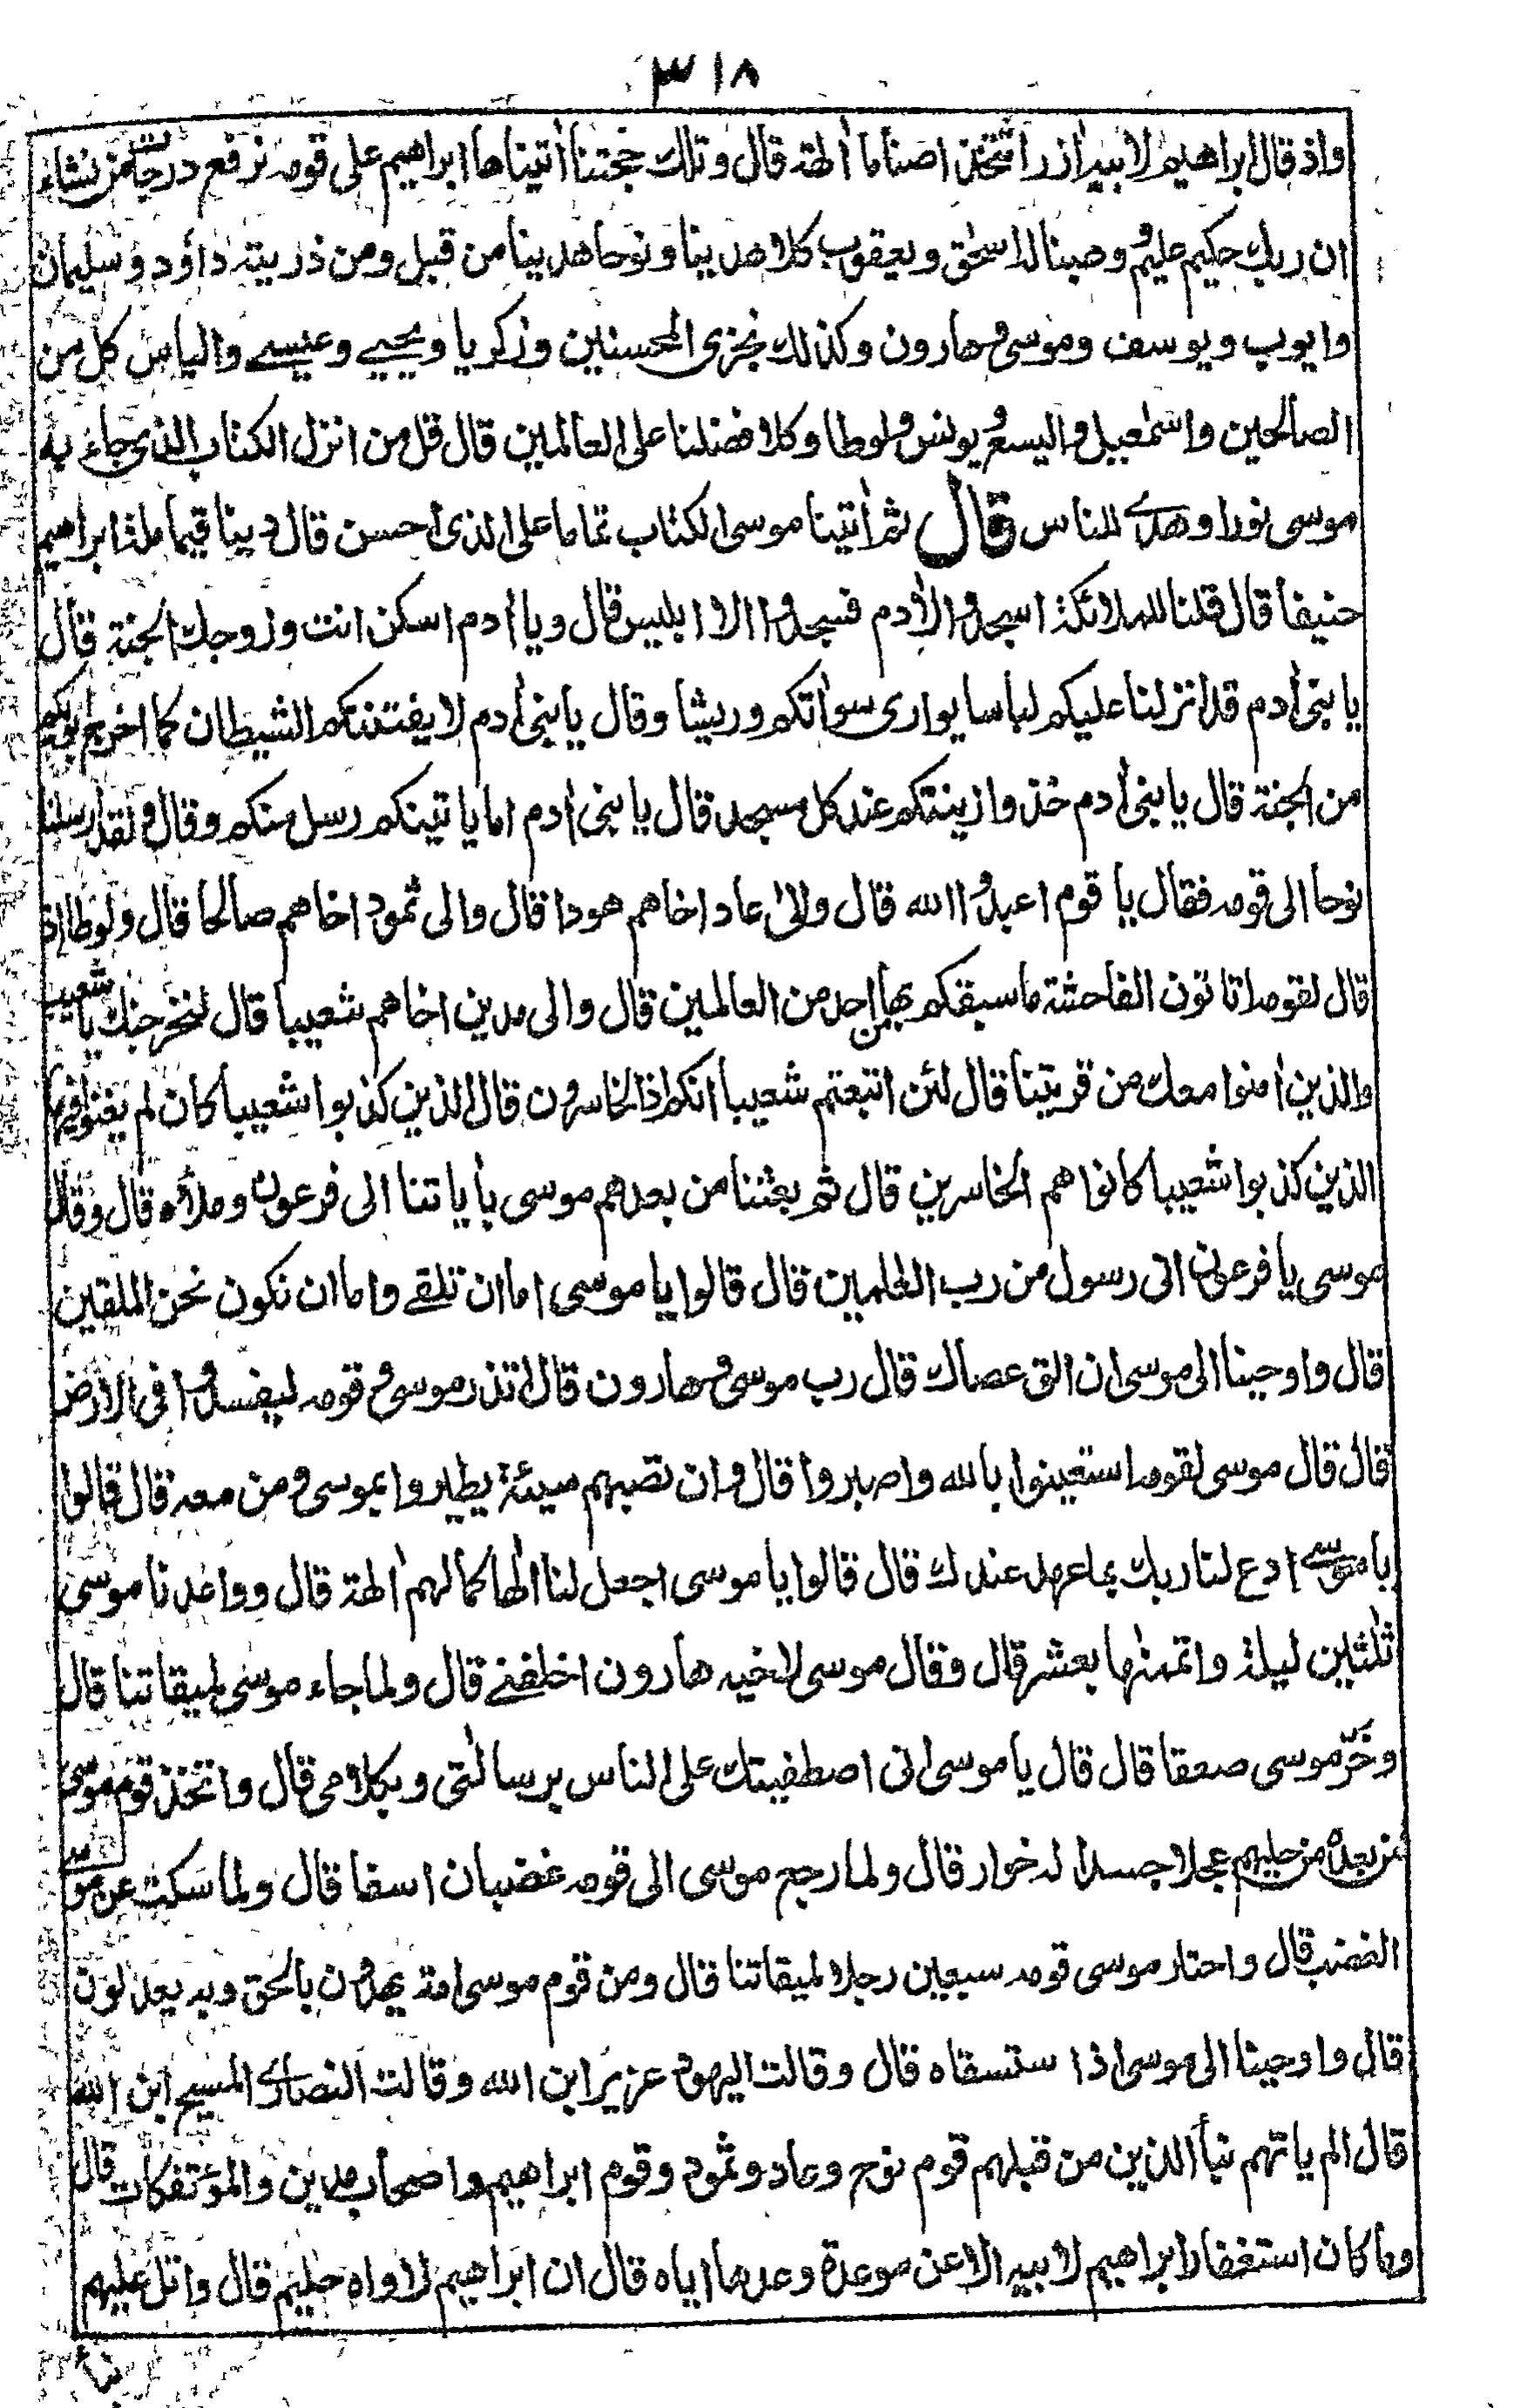 ٣١٨
واذ قال ابراهيم لابيه اٰزر اتتخذ اصناما اٰلهة قال وتلك حجتنا اٰتيناها ابراهيم على قومه نرفع درجات من نشاء
ان ربك حكيم عليم ووهبنا له اسحٰق ويعقوب كلا هدينا ونوحا هدينا من قبل ومن ذريته داوٗد وسليمان
وايوب ويوسف وموسى وهارون وكذلك نجزى المحسنين وزكريا ويحيى وعيسى والياس كل من
الصالحين واسمٰعيل واليسع ويونس ولوطا وكلا فضلنا على العالمين قال قل من انزل الكتاب الذى جاء به
موسى نورا وهدى للناس قال ثم اٰتينا موسى الكتاب تماما على الذى احسن قال دينا قيما ملة ابراهيم
حنيفا قال قلنا للملائكة اسجدوا لاٰدم فسجدوا الا ابليس قال ويا اٰدم اسكن انت وزوجك الجنة قال
يا بنى اٰدم قد انزلنا عليكم لباسا يوارى سواٰتكم وريشا وقال يا بنى اٰدم لا يفتننكم الشيطان كما اخرج ابويكم
من الجنة قال يا بنى اٰدم خذوا زينتكم عند كل مسجد قال يا بنى اٰدم اما ياتينكم رسل منكم وقال ولقد ارسلنا
نوحا الى قومه فقال يا قوم اعبدوا الله قال والى عاد اخاهم هودا قال والى ثمود اخاهم صالحا قال ولوطا اذ
قال لقومه اتاتون الفاحشة ما سبقكم بها من احد من العالمين قال والى مدين اخاهم شعيبا قال لنخرجنك يا شعيب
والذين اٰمنوا معك من قريتنا قال لئن اتبعتم شعيبا انكم اذا لخاسرون قال الذين كذبوا شعيبا كان لم يغنوا فيها
الذين كذبوا شعيبا كانوا هم الخاسرين قال ثم بعثنا من بعدهم موسى باٰياتنا الى فرعون وملأه قال وقال
موسى يا فرعون انى رسول من رب العٰلمين قال قالوا يا موسى اما ان تلقى واما ان نكون نحن الملقين
قال واوحينا الى موسى ان الق عصاك قال رب موسى وهارون قال اتذر موسى وقومه ليفسدوا فى الارض
قال قال موسى لقومه استعينوا بالله واصبروا قال وان تصبهم سيئة يطيروا بموسى ومن معه قال قالوا
يا موسى ادع لنا ربك بما عهد عندك قال قالوا يا موسى اجعل لنا الٰها كما لهم اٰلهة قال وواعدنا موسى
ثلٰثين ليلة واتممنٰها بعشر قال وقال موسى لاخيه هارون اخلفنى قال ولما جاء موسى لميقاتنا قال
وخرّ موسى صعقا قال قال يا موسى انى اصطفيتك على الناس برسالٰتى وبكلامى قال واتخذ قوم موسى
من بعده من حليهم عجلا جسدا له خوار قال ولما رجع موسى الى قومه غضبان اسفا قال ولما سكت عن موسى
الغضب قال واختار موسى قومه سبعين رجلا لميقاتنا قال ومن قوم موسى امة يهدون بالحق وبه يعدلون
قال واوحينا الى موسى اذا ستسقاه قال وقالت اليهود عزير ابن الله وقالت النصارى المسيح ابن الله
قال الم ياتهم نبأ الذين من قبلهم قوم نوح وعاد وثمود وقوم ابراهيم واصحاب مدين والمؤتفكات قال
وما كان استغفار ابراهيم لابيه الا عن موعدة وعدها اياه قال ان ابراهيم لاواه حليم قال واتل عليهم
نبأ